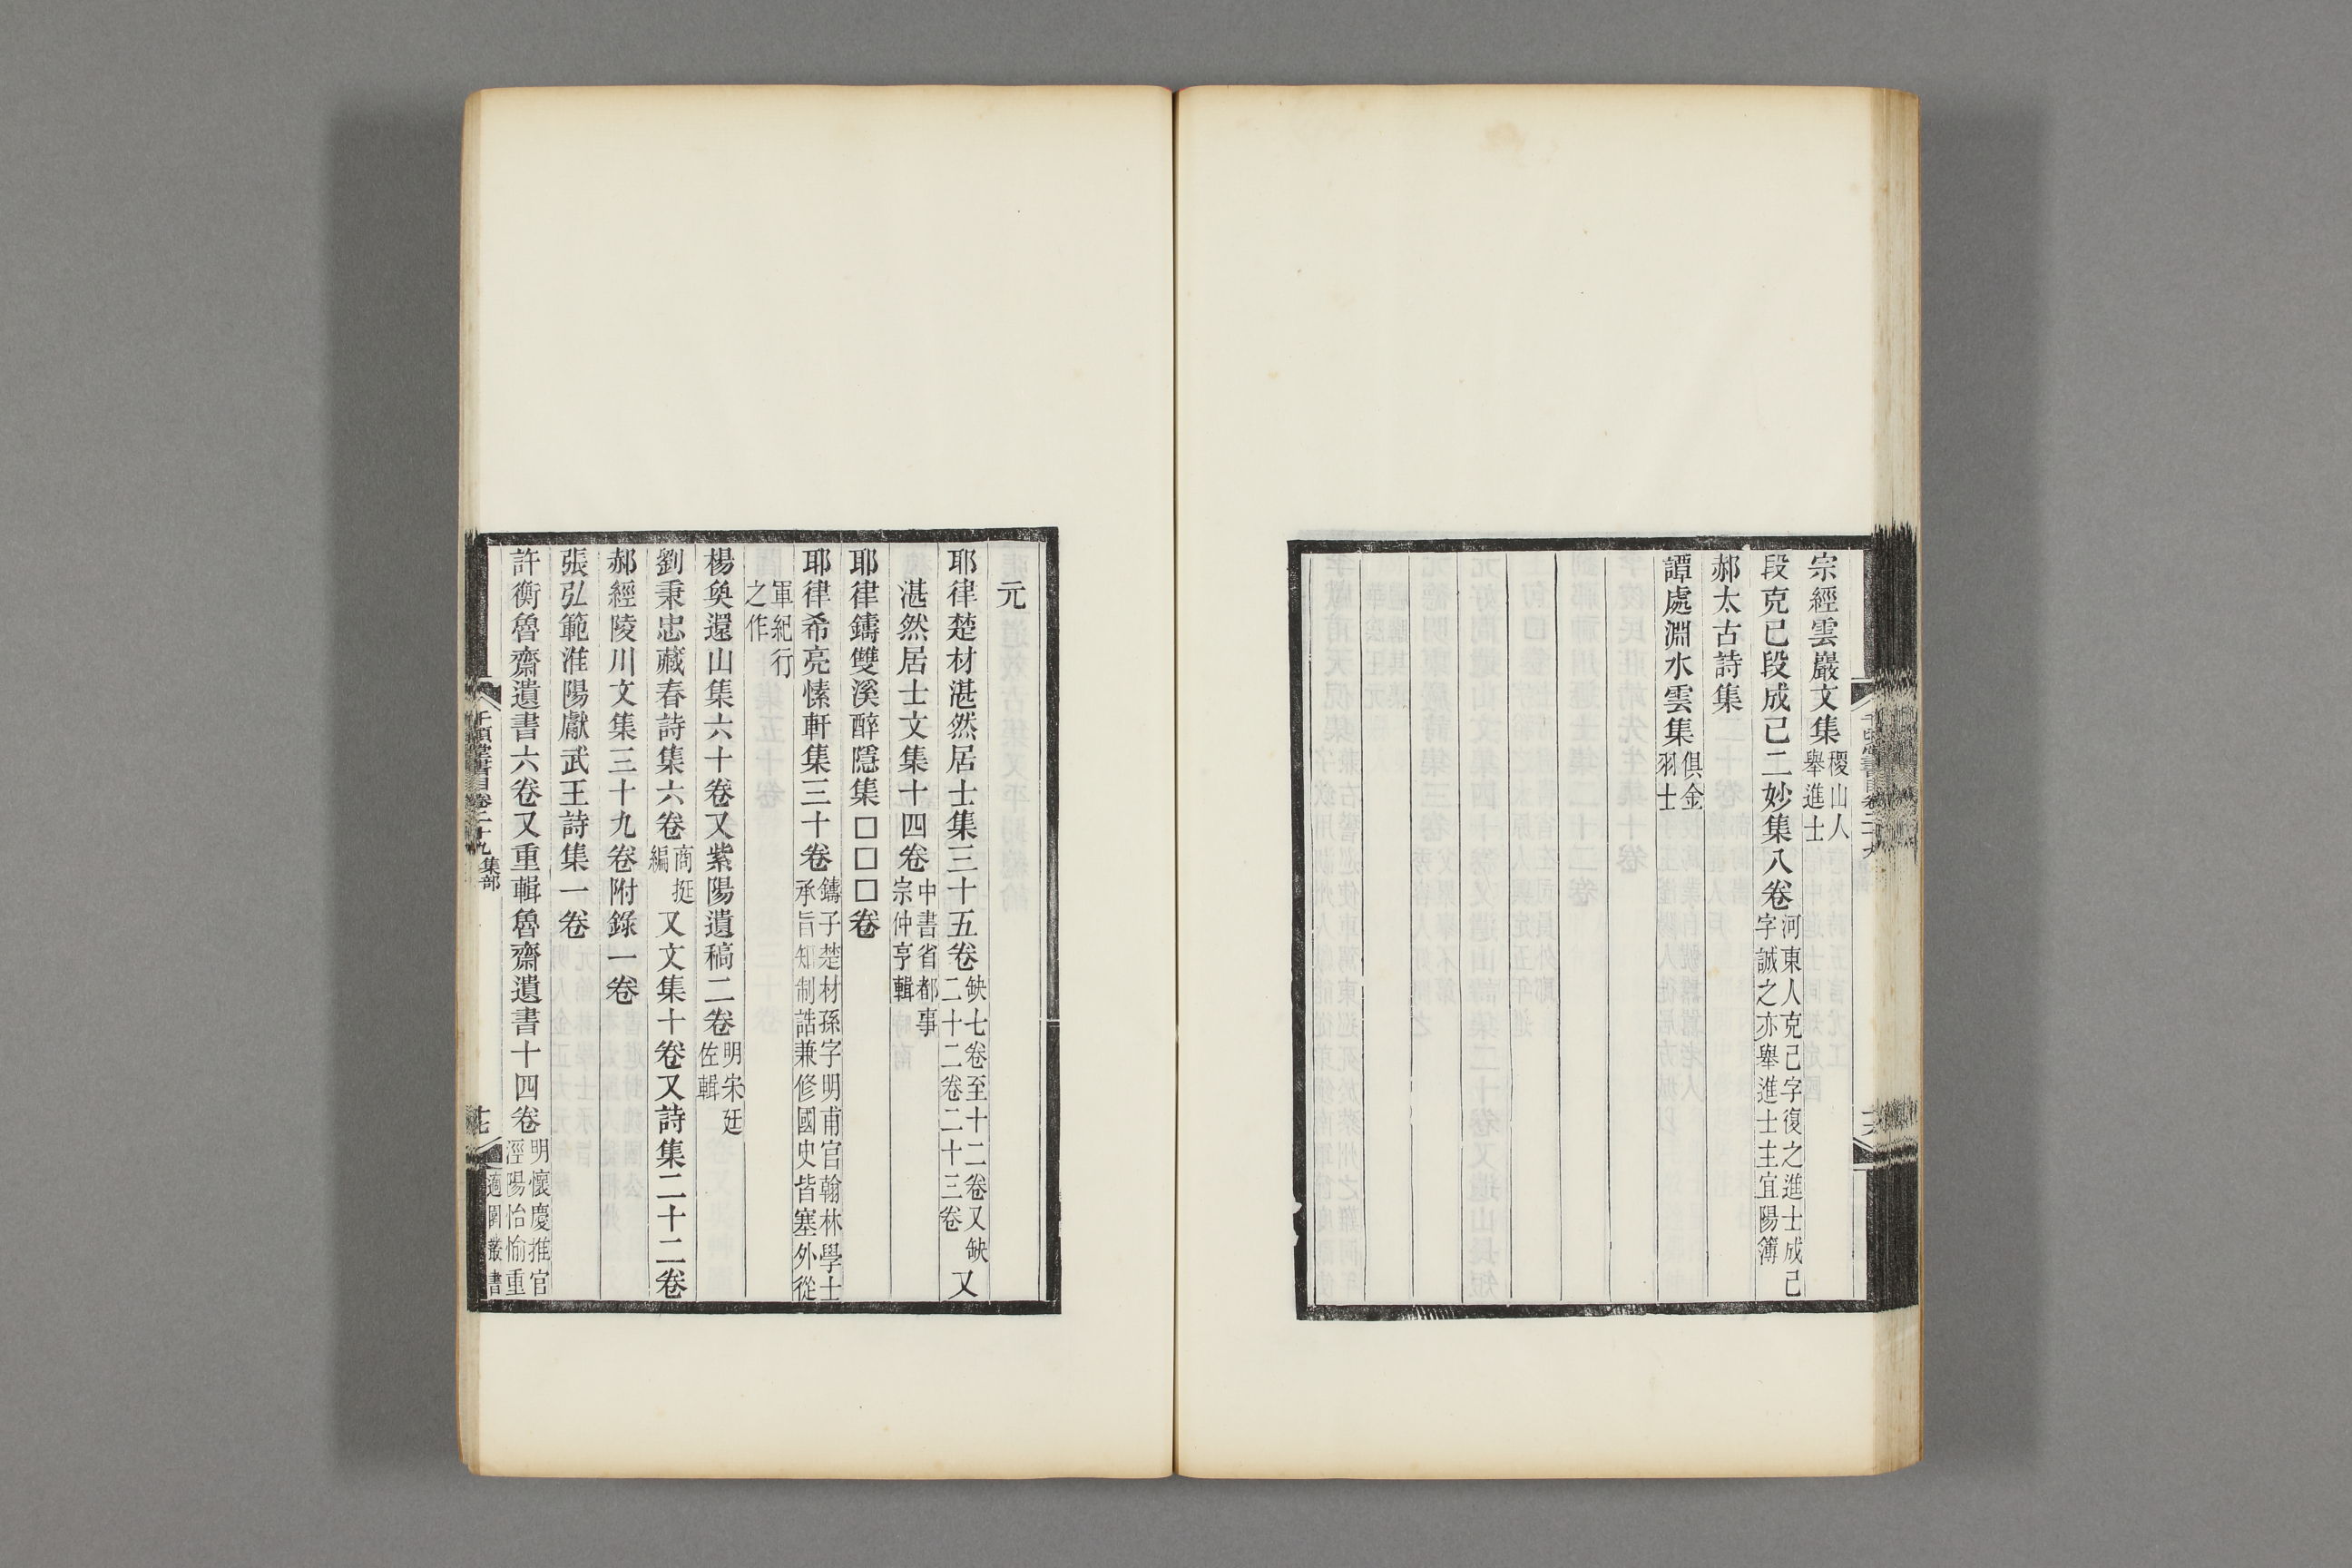 宗經雲巖文集稷山人舉進士
段克已段成已二妙集八卷河東人克己字復之進士成己字誠之亦舉進士主宜陽簿
郝太古詩集
譚處淵水雲集俱金羽士
元
耶律楚材湛然居士集三十五卷缺七卷至十二卷又缺二十二卷二十三卷又
湛然居士文集十四卷中書省都事宗仲亨輯
耶律鑄雙溪醉隱集□□□卷
耶律希亮愫軒集三十卷鑄子楚材孫字明甫官翰林學士承旨知制誥兼修國史皆塞外從
軍紀行之作
楊奐還山集六十卷又紫陽遺稿二卷明宋廷佐輯
劉秉忠藏春詩集六卷商挺編又文集十卷又詩集二十二卷
郝經陵川文集三十九卷附錄一卷
張弘範淮陽獻武王詩集一卷
許衡魯齋遺書六卷又重輯魯齋遺書十四卷明懷慶推官涇陽怡愉重
千頃堂書目卷二十九 集部
十七
適園叢書